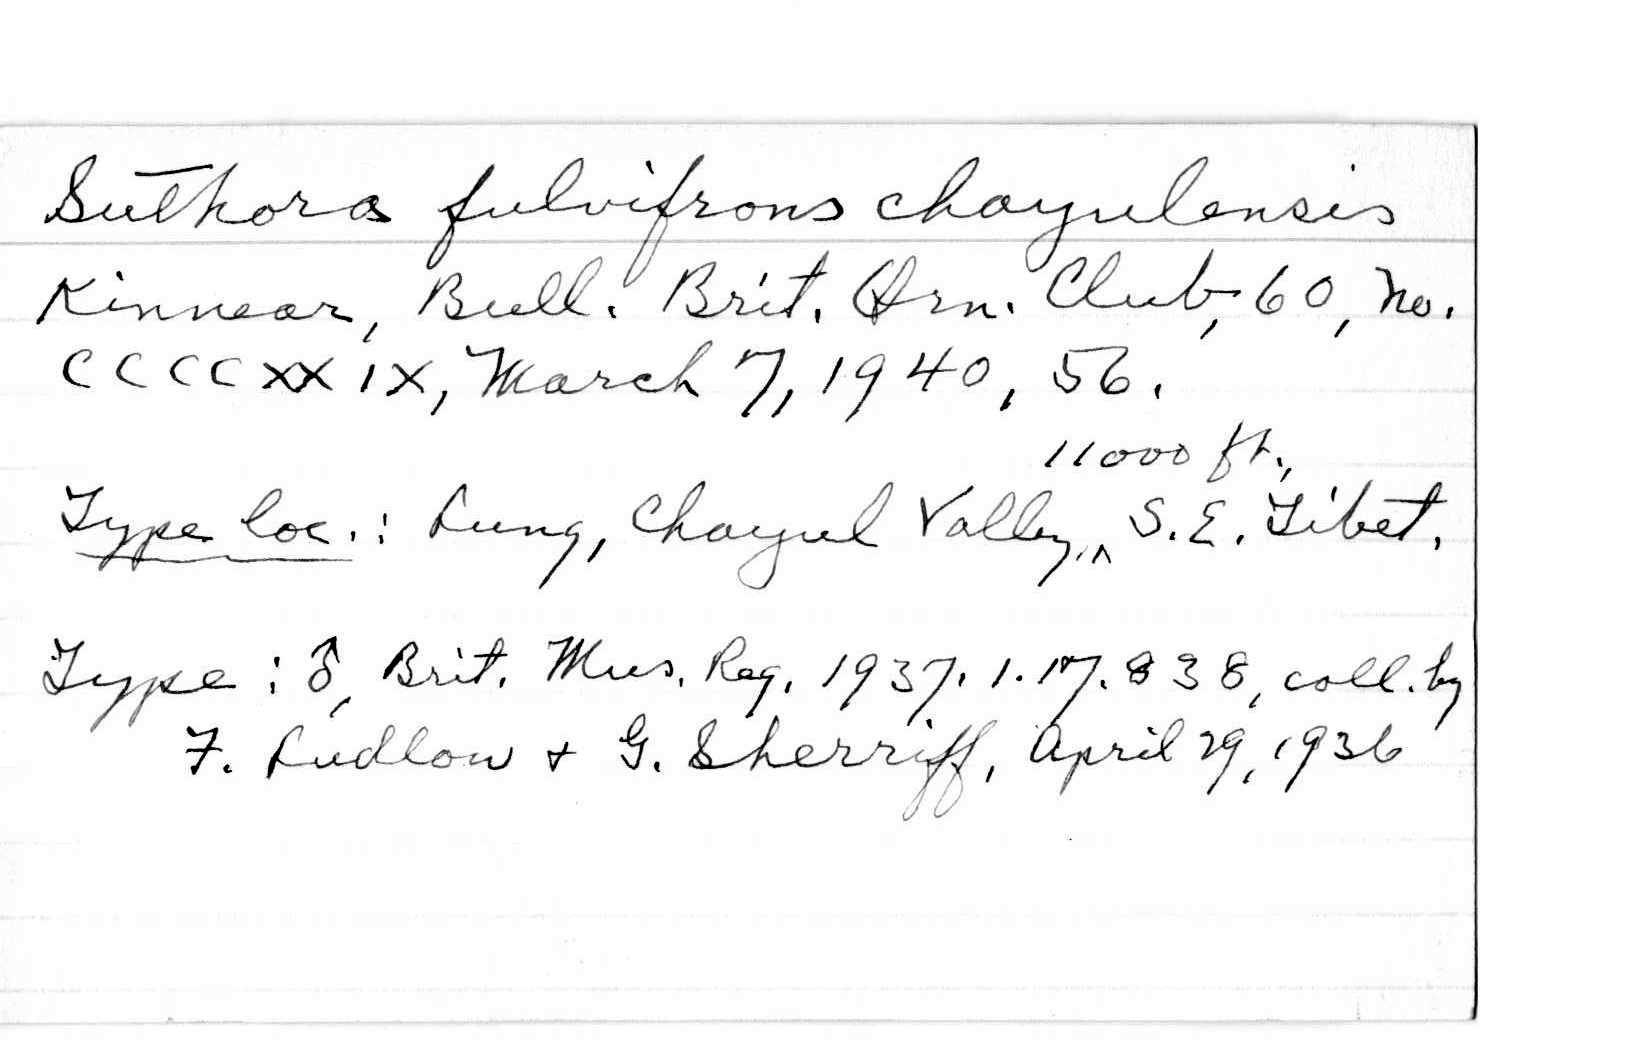 Suthora fulvifrons chayulensis
Kinnear, Bull. Brit. Orn. Club, 60, No.
CCCCXXIX, March 7, 1940, 56.
11000 ft.,
Type loc.: Lung, Chayul Valley, ^ S.E. Tibet.
Type: ♂, Brit. Mus. Reg. 1937.1.17.838, coll. by
F. Ludlow + G. Sherriff, April 29, 1936